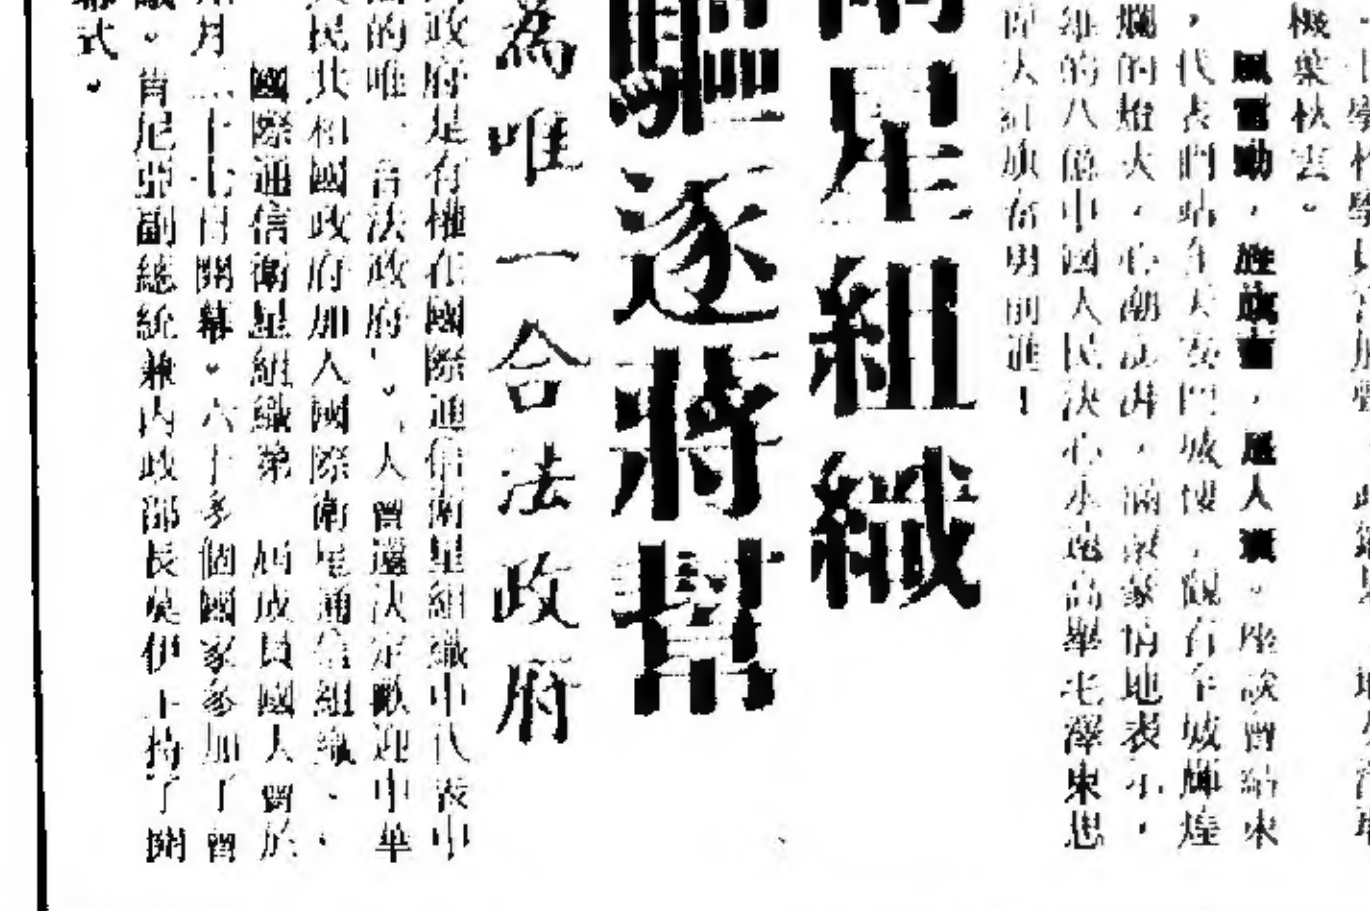 機葉秋雲。
風雷動，旌旗奮，是人寰。座談會結束
，代表們站在天安門城樓，觀看全城輝煌
爛的燈火，心潮澎湃，滿懷豪情地表示，
雄的八億中國人民決心永遠高舉毛澤東思
偉大紅旗奮勇前進！
星組織
驅逐蔣幫
為唯一合法政府
政府是有權在國際通信衛星組織中代表中
的唯一合法政府」。「大會還決定歡迎中華
民共和國政府加入國際衛星通信組織、，
國際通信衛星組織第 屆成員國大會於
月二十七日開幕。六十多個國家參加了會
。肯尼亞副總統兼內政部長莫伊主持了開
幕式。